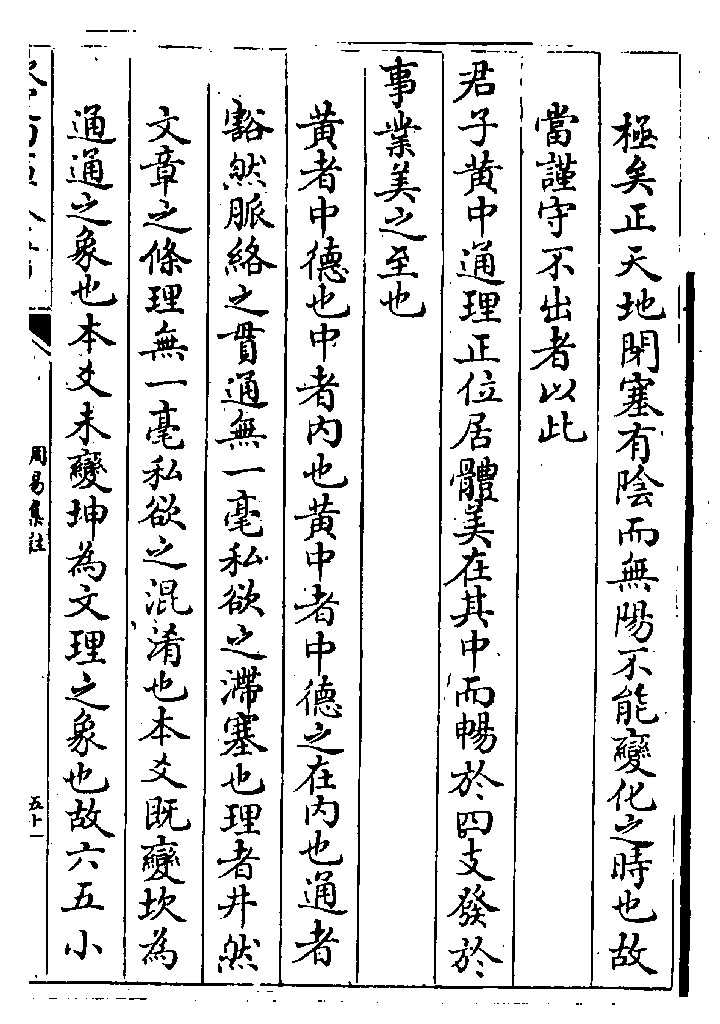 極矣正天地閉塞有陰而無陽不能變化之時也故
當謹守不出者以此
君子黃中通理正位居體美在其中而暢於四支發於
事業美之至也
黃者中德也中者内也黃中者中德之在内也通者
豁然脈絡之貫通無一毫私欲之滯塞也理者井然
文章之條理無一毫私欲之混淆也本爻既變坎為
通通之象也本爻未變坤為文理之象也故六五小
周易集註
五十一